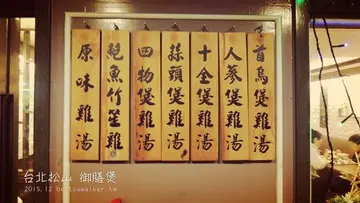 首烏煲雞湯
人蔘煲雞湯
十全煲雞湯
蒜頭煲雞湯
四物煲雞湯
鮑魚竹笙雞
原味雞湯
台北松山 御膳煲
2015.12 hertouwalker.tw